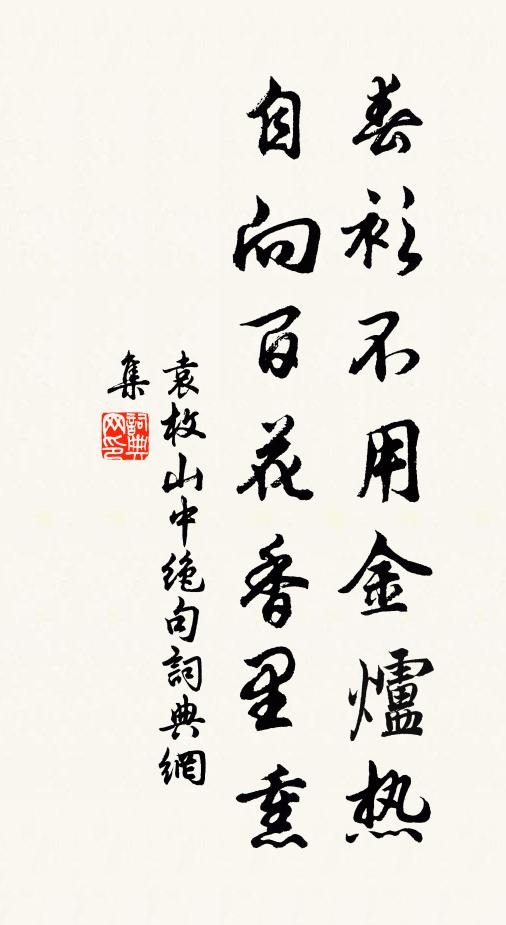 春衫不用金爐热
自向百花香里熏
袁枚山中绝句詞典網
集
詞典
网印